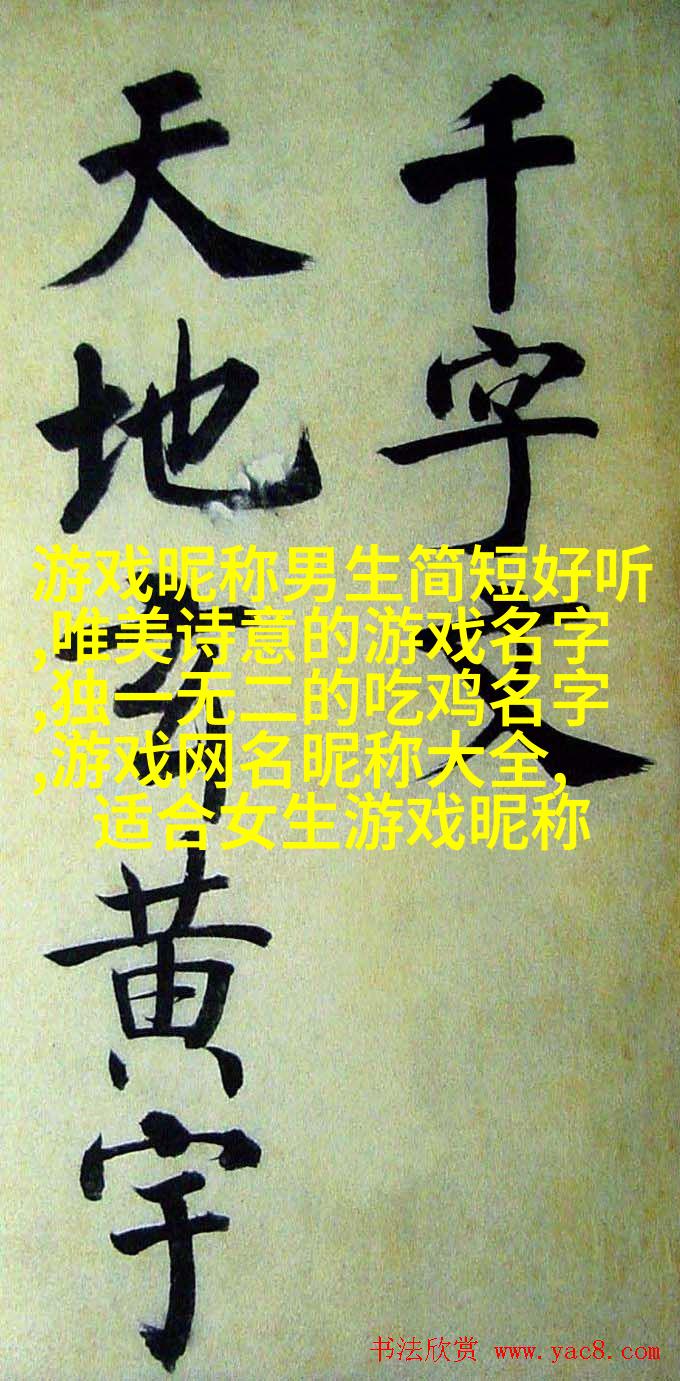 千字文
天地黄宇
游戏昵称男生简短好听
,唯美诗意的游戏名字
,独一无二的吃鸡名字
,游戏网名昵称大全,
适合女生游戏昵称
书法欣赏 www.yac8.com